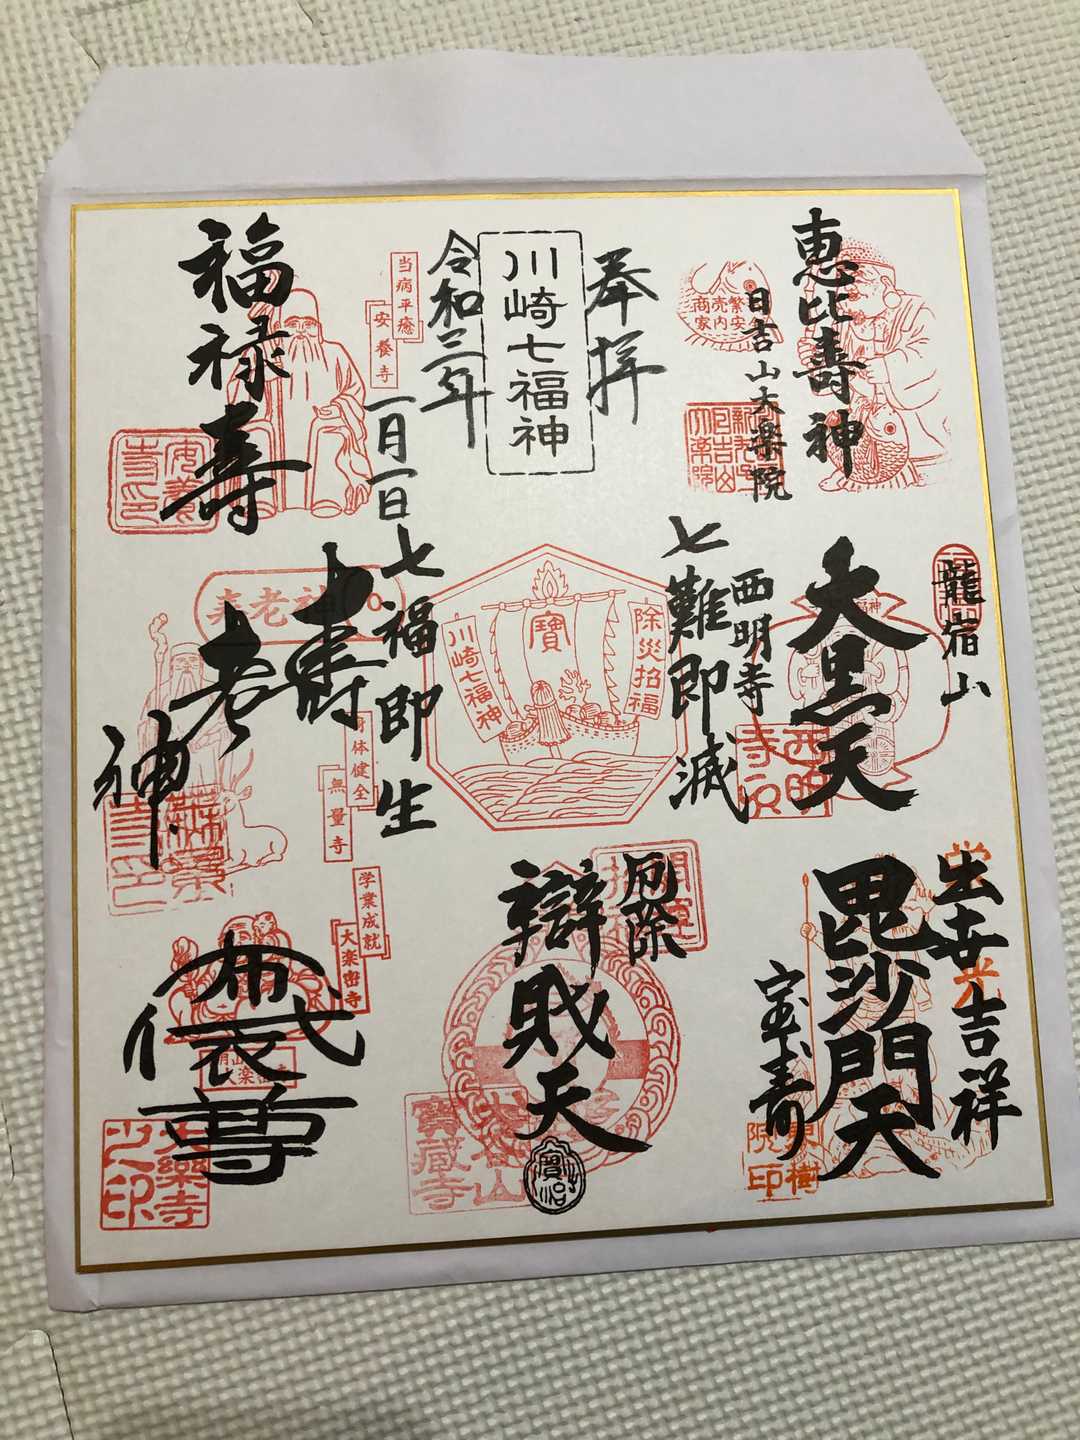 恵比寿神
日吉山大楽院
商売繁
家内安
奉拝
川崎七福神
令和三年
一月一日
当病平癒
安養寺
福禄寿
安養
寺印
龍宿山
大黒天
西明寺
西明
寺印
七難即滅
除災招福
寶
川崎七福神
七福即生
寿老神
寿老神
身体健全
無量寺
出世吉祥
毘沙門天
宝寿
樹
院印
厄除
辯財天
寶蔵寺
学業成就
大楽密寺
布袋尊
大楽寺
之印